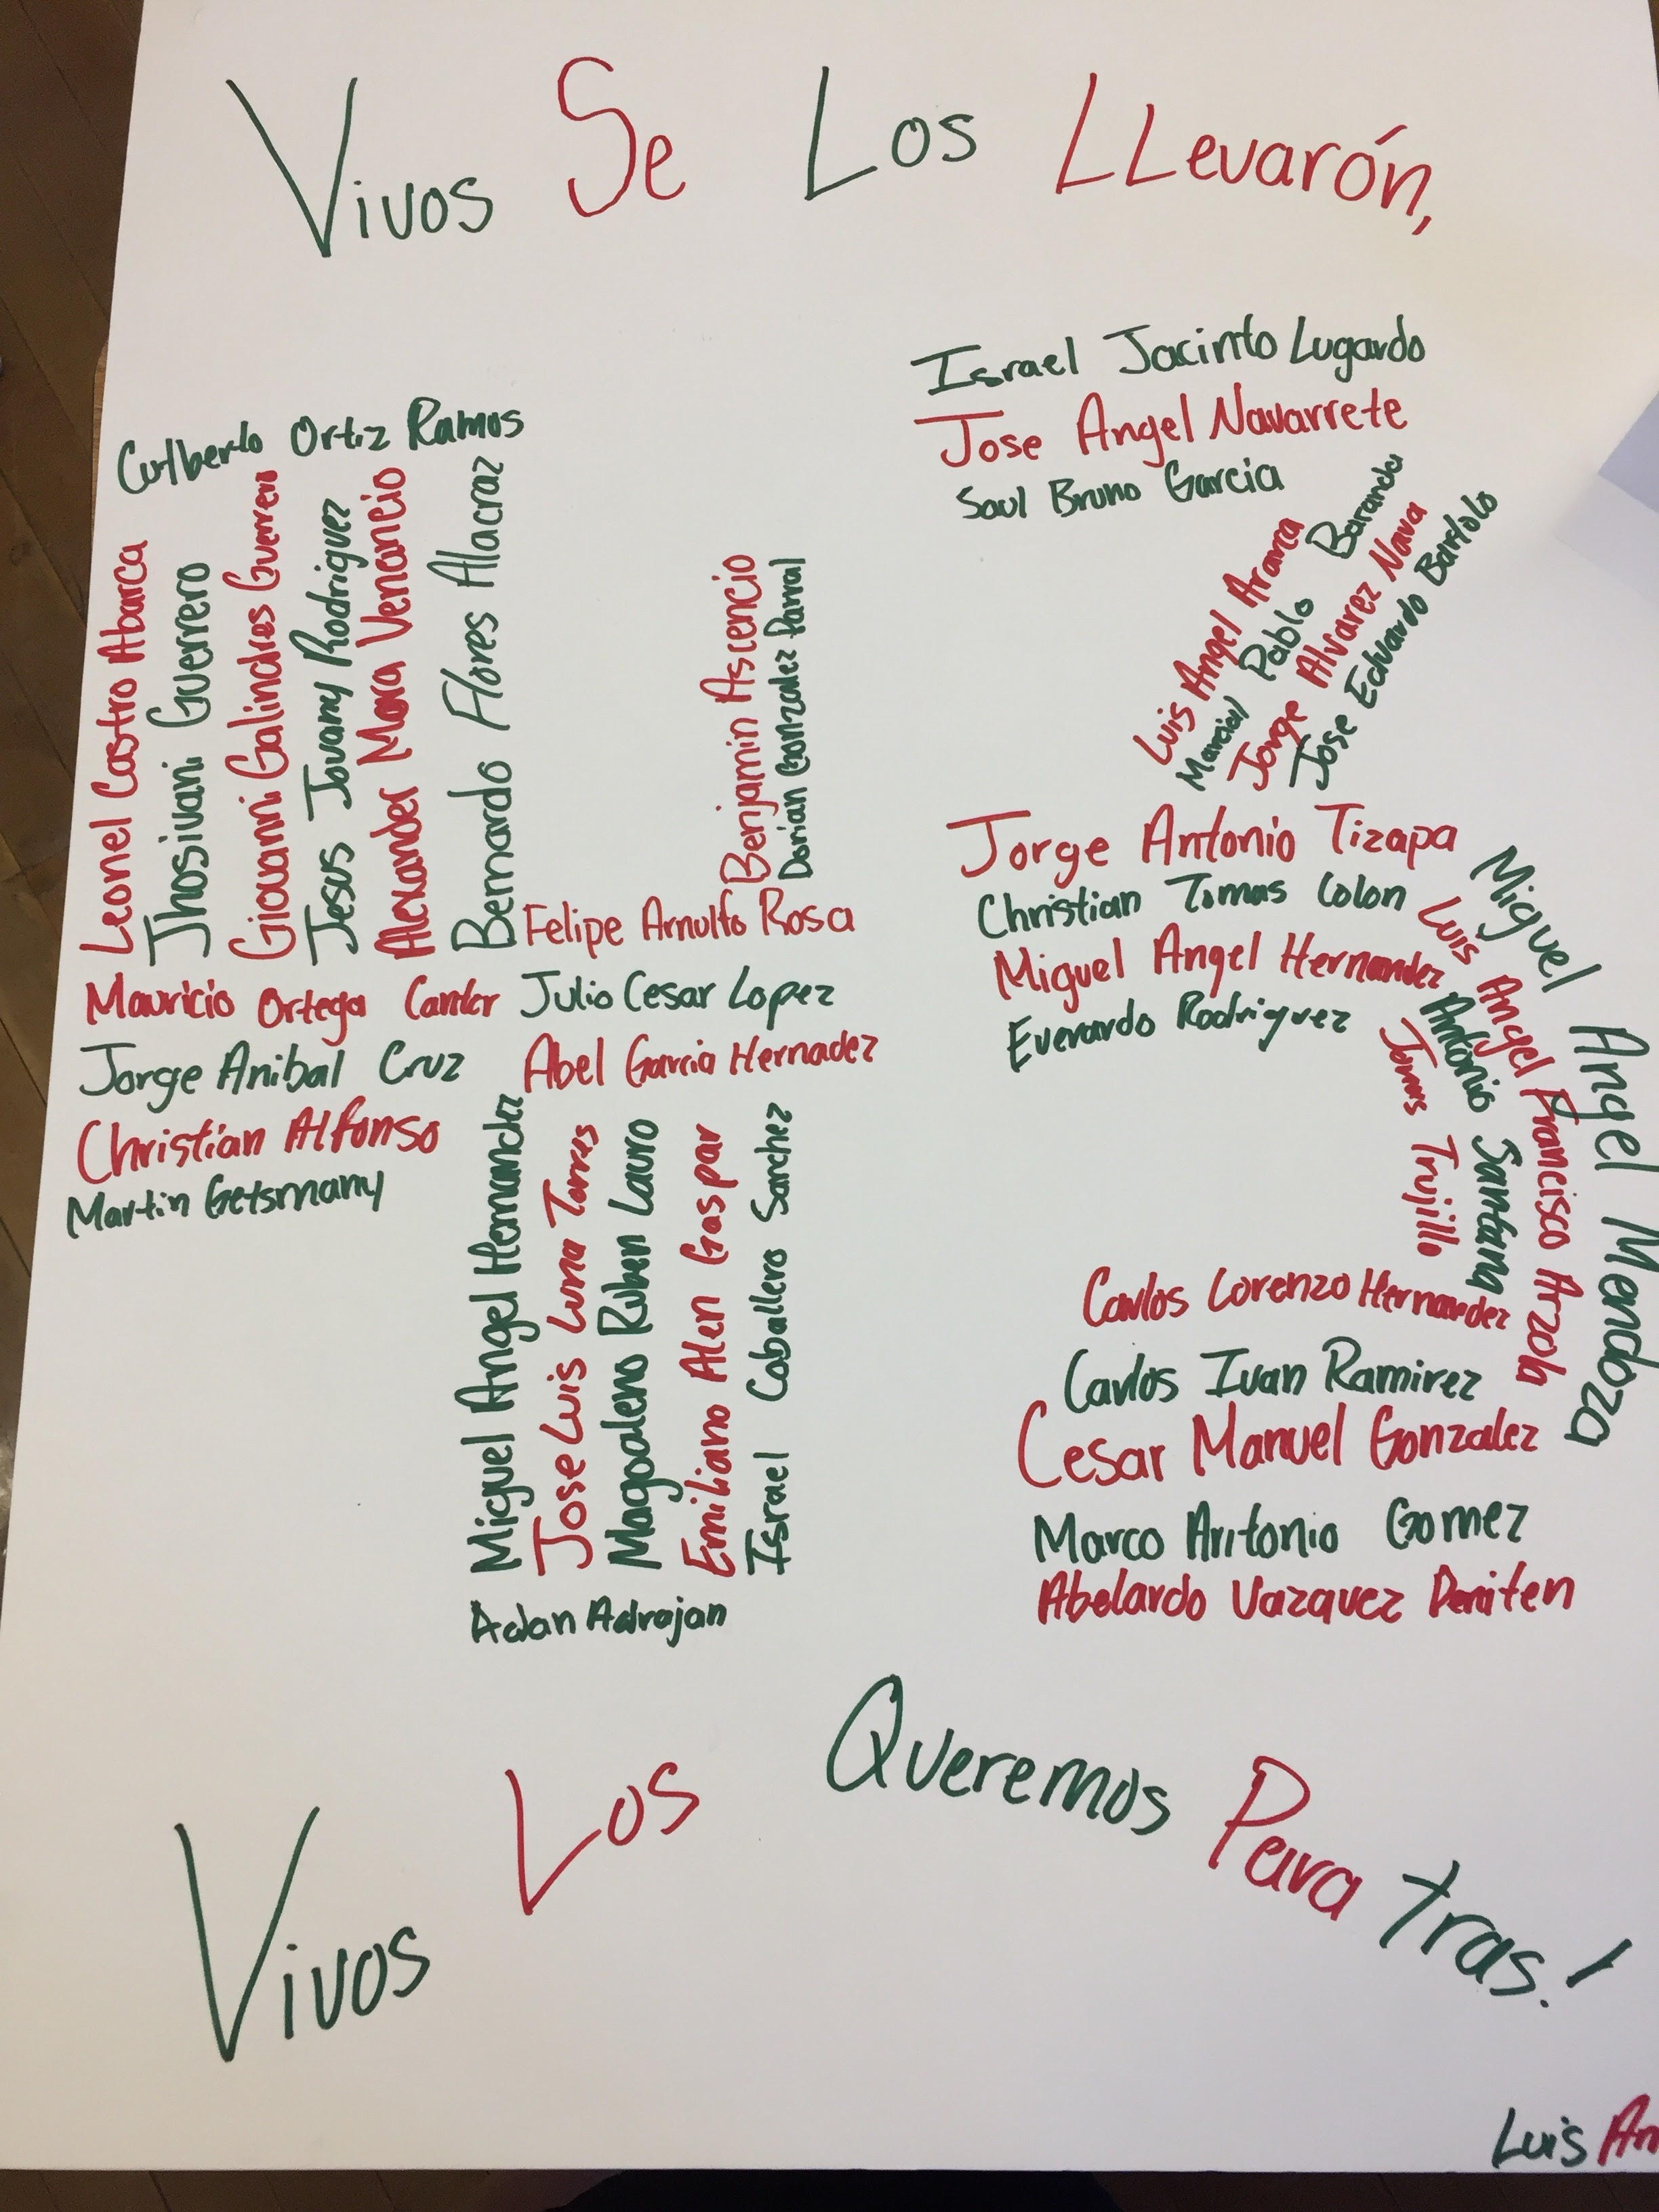 Vivos Se Los LLevarón,
Cutberto Ortiz Ramos
Leonel Castro Abarca
Jhosivani Guerrero
Giovanni Galindres Guerrero
Jesus Jovany Rodriguez
Alexander Mora Venancio
Bernardo Flores Alacraz
Benjamin Ascencio
Dorian Gonzalez Parral
Felipe Arnulfo Rosa
Mauricio Ortega
Julio Cesar Lopez
Jorge Anibal Cruz
Abel Garcia Hernadez
Christian Alfonso
Martin Getsmany
Miguel Angel Hernandez
Jose Luis Luna Torres
Magdaleno Ruben Lauro
Emiliano Alen Gaspar
Israel Caballero Sanchez
Adan Adrajan
Israel Jacinto Lugardo
Jose Angel Navarrete
Saul Bruno Garcia
Luis Angel Abarca
Marcial Pablo Baranda
Jorge Alvarez Nava
Jose Eduardo Bartolo
Jorge Antonio Tizapa
Christian Tomas Colon
Miguel Angel Hernandez
Everardo Rodriguez
Miguel Angel Mendoza
Luis Angel Francisco Arzola
Antonio Santana
Jonas Trujillo
Carlos Lorenzo Hernandez
Carlos Ivan Ramirez
Cesar Manuel Gonzalez
Marco Antonio Gomez
Abelardo Vazquez
Vivos Los Queremos Para tras!
Luis An